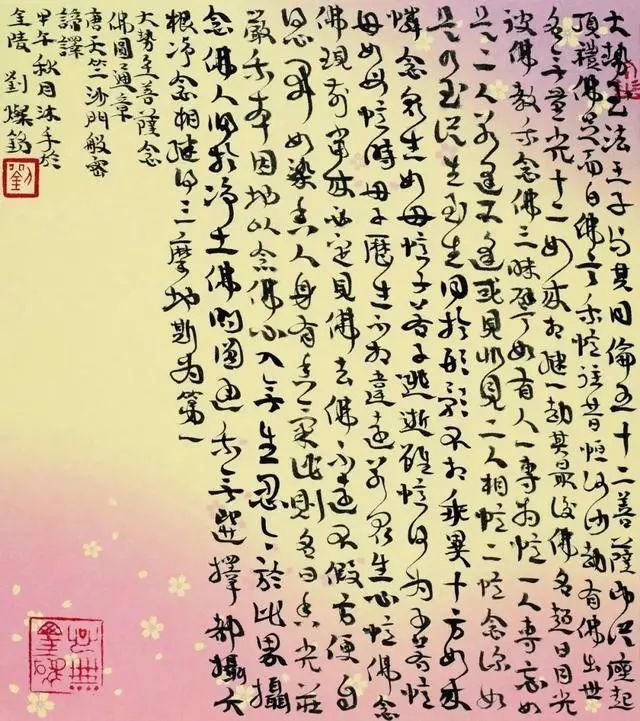 大勢至法王子與其同倫五十二菩薩即從座起
頂禮佛足而白佛言我憶往昔恒河沙劫有佛出世
名無量光十二如來相繼一劫其最後佛名超日月光
彼佛教我念佛三昧譬如有人一專為憶一人專忘如
是二人若逢不逢或見非見二人相憶二憶念深如
是乃至從生至生同於形影不相乖異十方如來
憐念眾生如母憶子若子逃逝雖憶何為子若憶
母如母憶時母子歷生不相違遠若眾生心憶佛念
佛現前當來必定見佛去佛不遠不假方便自
得心開如染香人身有香氣此則名曰香光莊
嚴我本因地以念佛心入無生忍今於此界攝
念佛人歸於淨土佛問圓通我無選擇都攝六
根淨念相繼得三摩地斯為第一
大勢至菩薩念
佛圓通章
唐天竺沙門般密
諦譯
甲午秋月沐手於
金陵劉燦銘
劉